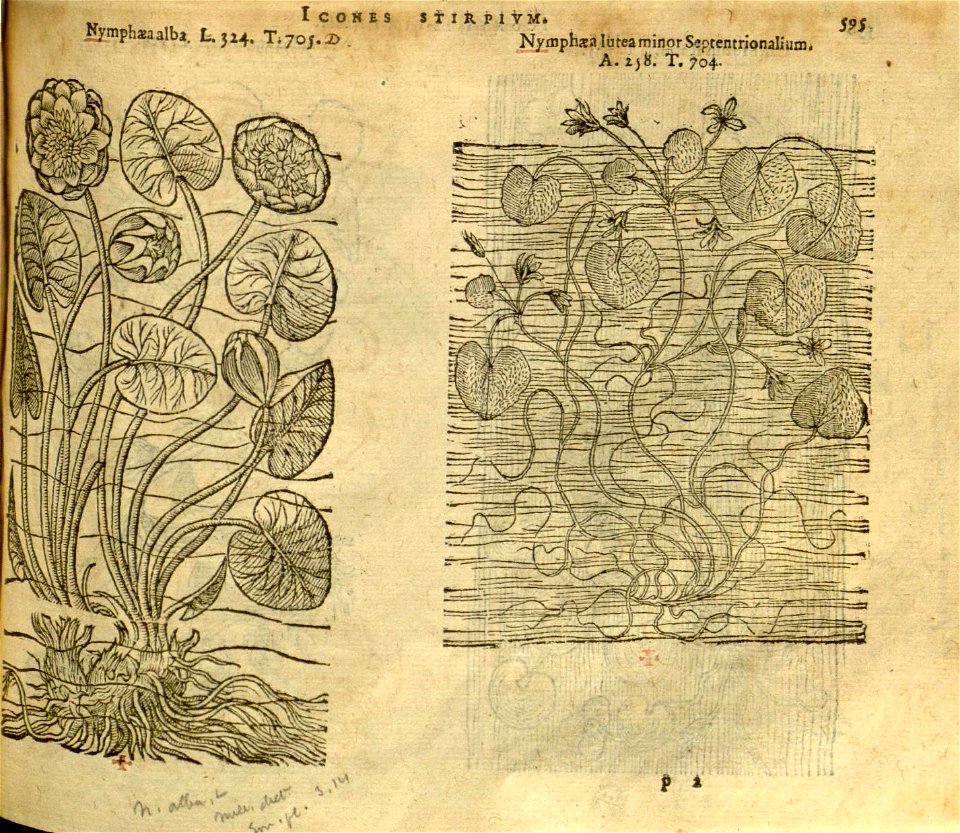 ICONES STIRPIVM.
595
Nymphæa alba, L. 324. T. 705. D
Nymphæa lutea minor Septentrionalium.
A. 258. T. 704.
p 2
n. alba, L